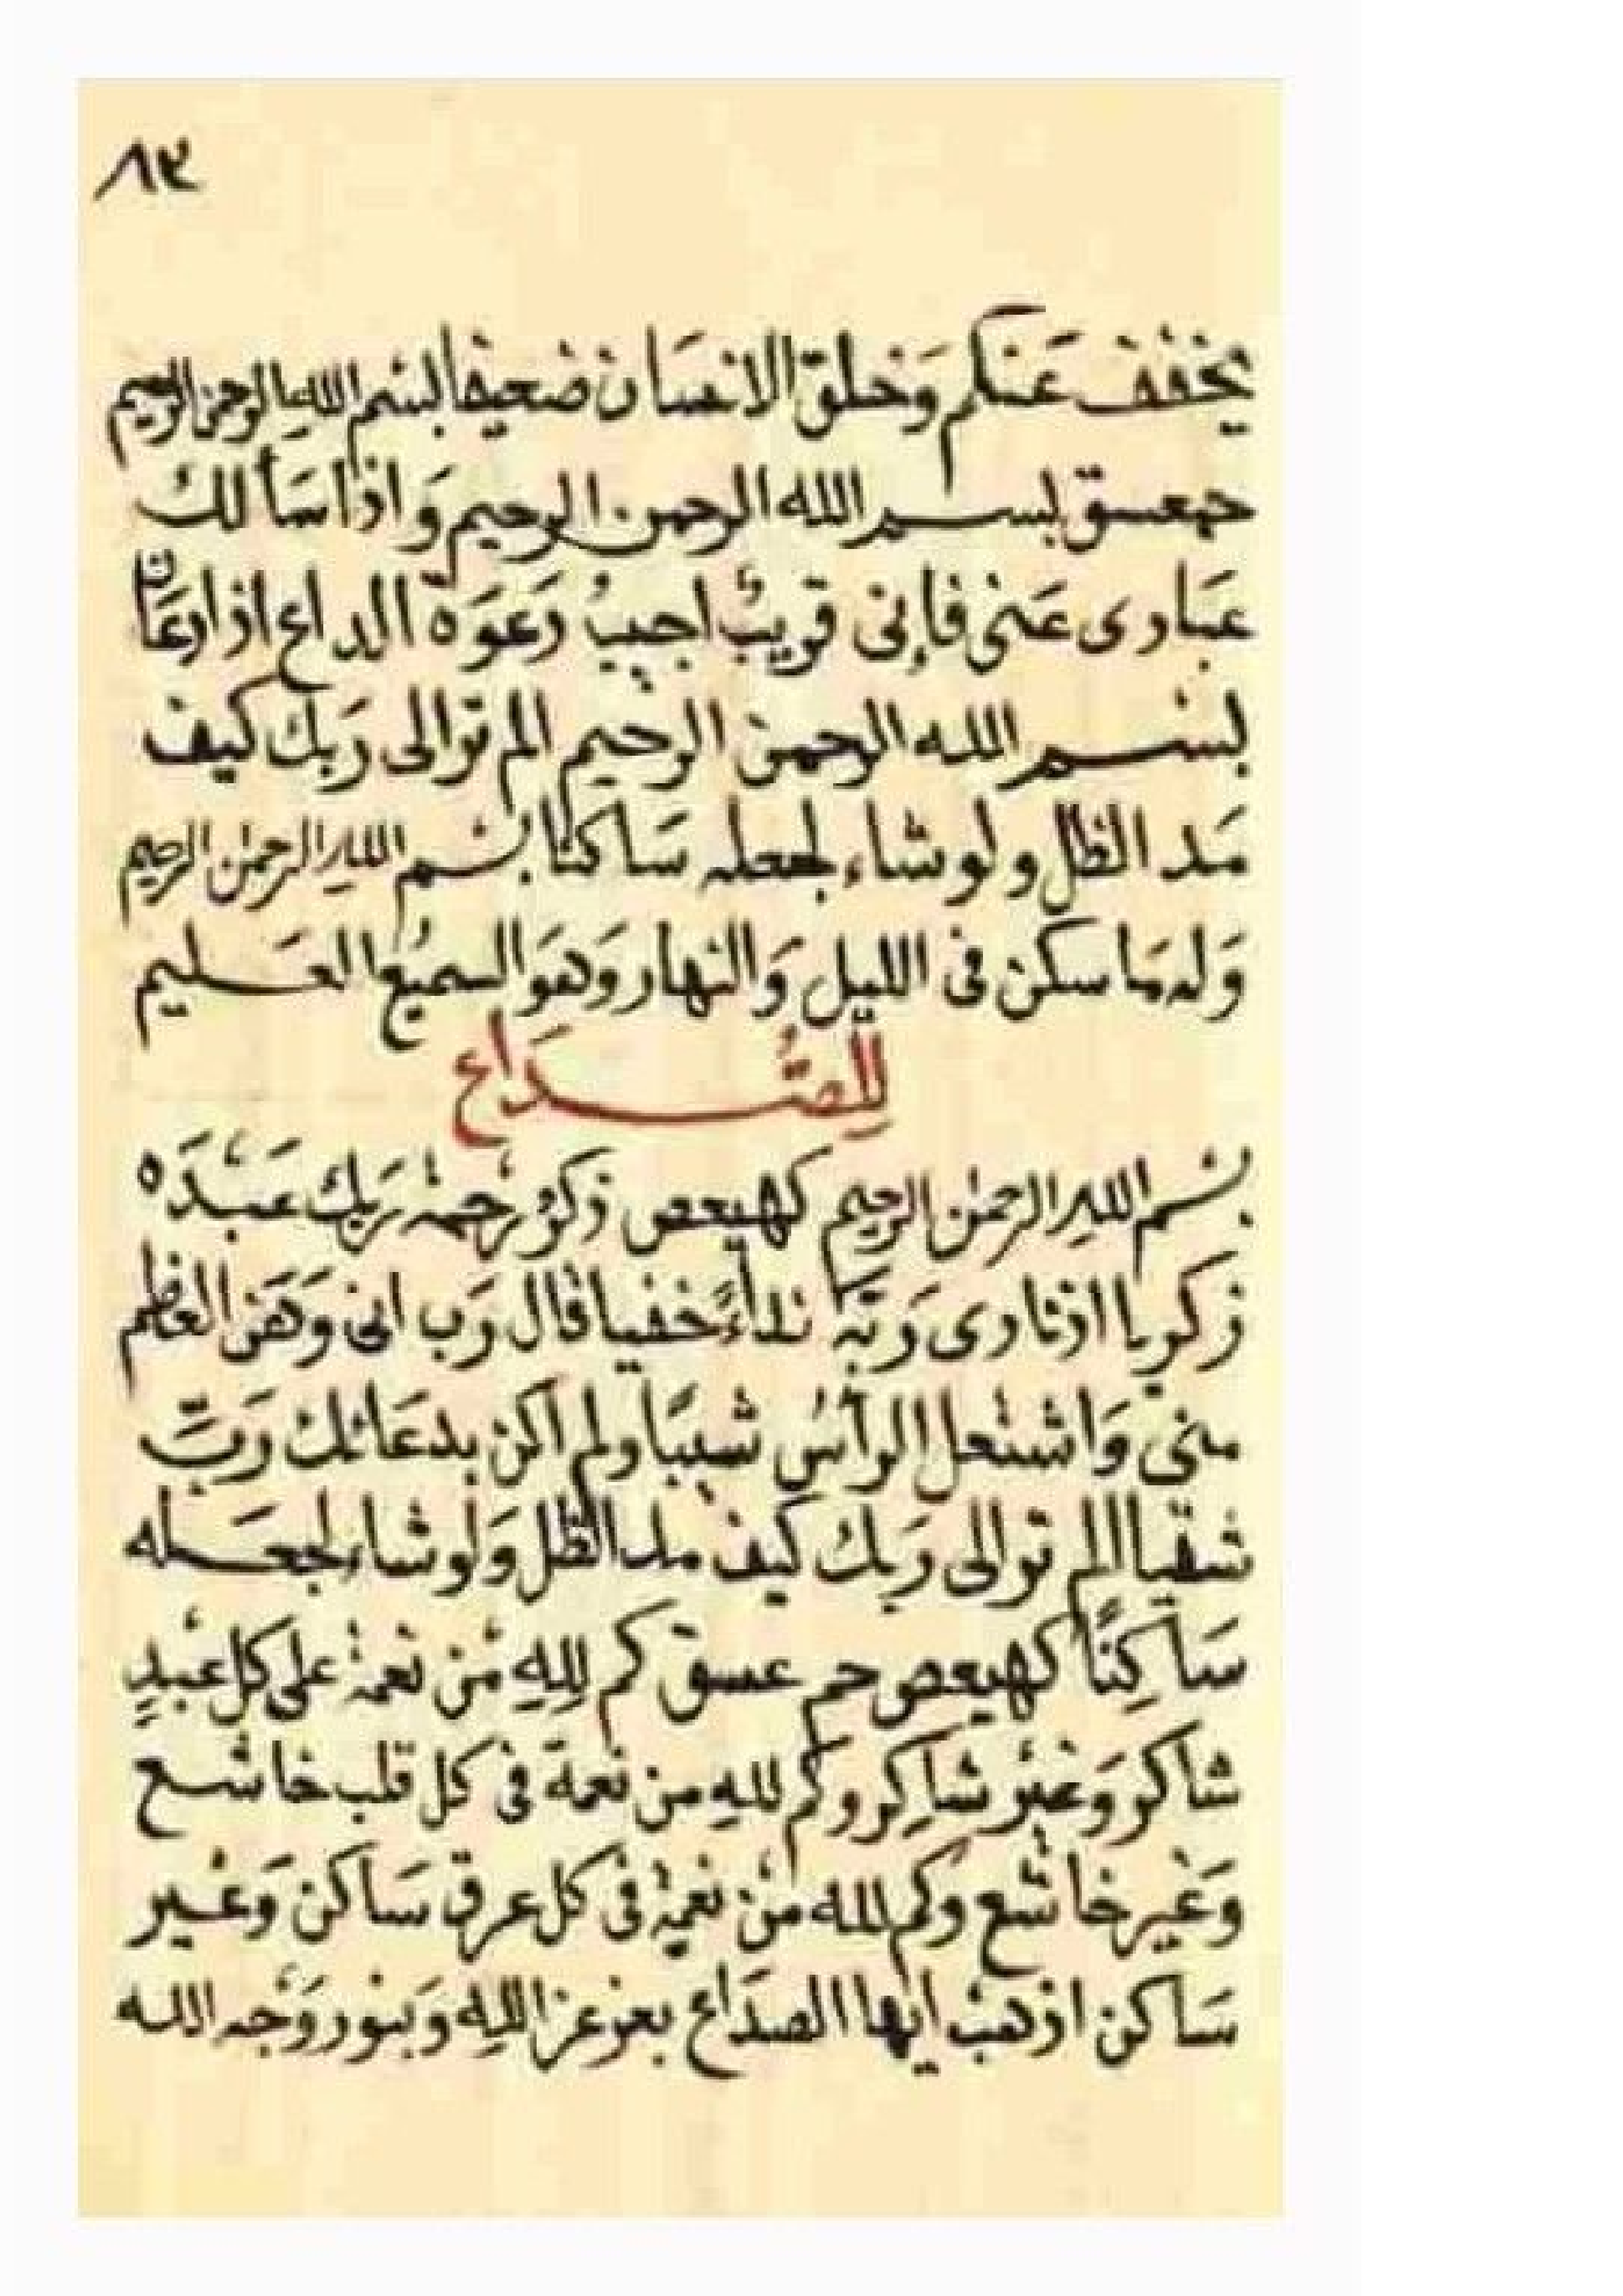 ٨٣
يخفف عنكم وَخلق الانسَان ضعيفا بسْم اللهِ الرحمن الرحيم
حمعسق بسم الله الرحمن الرحيم وَاذا سَألك
عبَادى عَنى فإنى قريبٌ اجيبُ دَعوَة الداع اذا دعَانِ
بسْم الله الرحمن الرحيم الم تر الى رَبك كيف
مَد الظل ولو شاء لجعله سَاكنا بسْم اللهِ الرحمن الرحيم
وَله مَا سكن فى الليل وَالنهار وَهوَ السميُع العَليم
لِلصُّدَاع
بسْم اللهِ الرحمن الرحيم كهيعص ذكرُ رَحمة رَبك عَبْدَه
زكريا اذ نادى رَبّه نداءً خفيا قال رَب انى وَهَن العظم
منى وَاشتعل الرأسُ شيبًا ولم اكن بدعَائك رَبّ
شقيا الم تر الى رَبك كيف مد الظل وَلو شاء لجعَله
سَاكِنًا كهيعص حم عسق كم لِلهِ مْن نعمة على كل عبدٍ
شاكر وَغيْر شاكِر وكم للهِ من نعمة فى كل قلب خاشع
وَغير خاشع وكم لله مْن نعمة فى كل عرق سَاكن وَغير
سَاكن اذهبْ ايها الصدَاع بعز عز اللهِ وَبنور وَجه الله